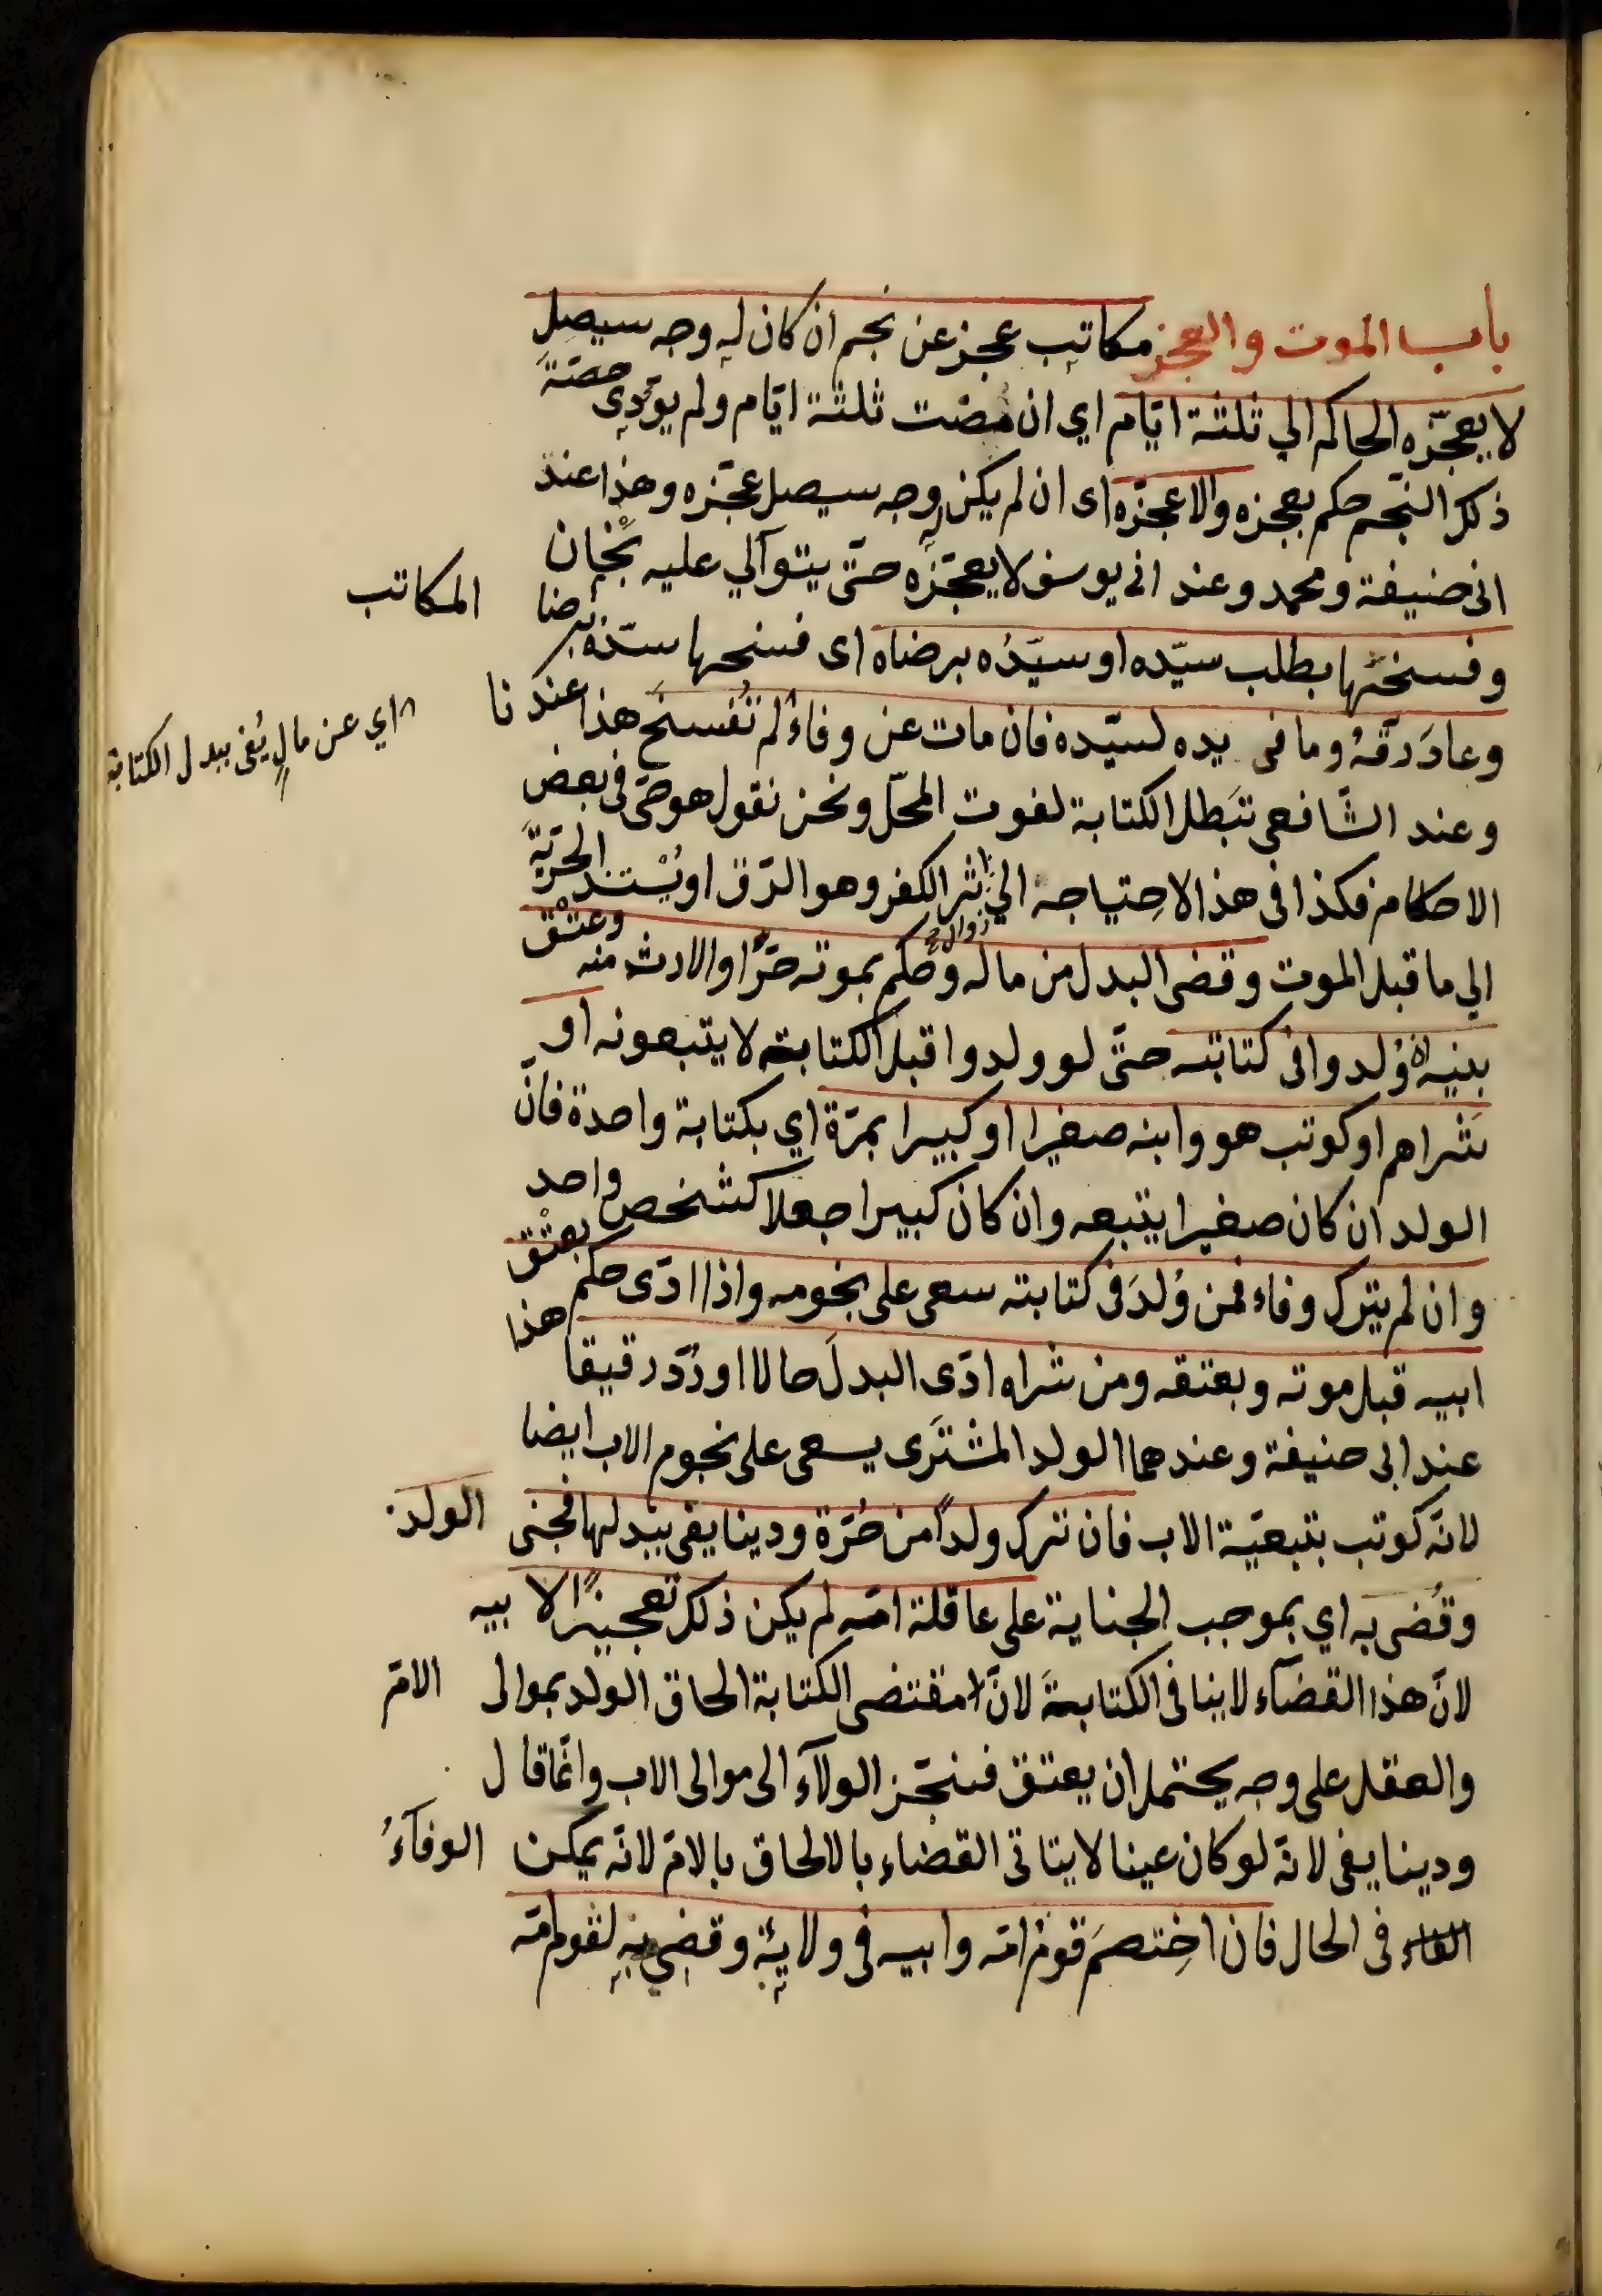 باب الموت والعجز مكاتب عجز عن نجم ان كان له وجه سيصل
لا يعجزه الحاكم الي ثلثة ايّام اي ان مضت ثلثة ايّام ولم يؤدّى حصّة
ذلك النّجم حكم بعجزه والا عجزه اى ان لم يكن له وجه سيصل عجّزه وهذا عند
ابى حنيفة ومحمد وعند ابى يوسف لا يعجّزه حتّى يتوالي عليه نجمان
وفسختها بطلب سيّده او سيّدُه برضاه اى فسخها سيّده برضا المكاتب
وعادَ رقّهُ وما فى يده لسيّده فان مات عن وفاءٌ لم تُفسخَ هذا عندنا
۸ اي عن مالٍ يَفى ببدل الكتابة
وعند الشّافعى تَبَطل الكتابة لفوت المحلّ ونحن نقول هو حىّ فى بعض
الاحكام فكذا فى هذا الاحتياجه الي زوال اثر الكفر وهو الرّق او يُستند الحرّيّة
الي ما قبل الموت وقضى البدل من ماله وحكم بموته حرًّا والارث منه وعتْق
بنيه وُلدوا فى كتابته حتّى لو ولدوا قبل الكتابة لا يتبعونه او
شراهم او كوتب هو وابنه صغيرا او كبيرا بمرّة اي بكتابة واحدة فانّ
الولد ان كان صغيرا يتبعه وان كان كبيرا جعلا كشخص واحد
وان لم يترك وفاء فمن وُلدَ فى كتابته سعى على نجومه واذا ادّى حكم بعتْق
ابيه قبل موته وبعتقه ومن شراه ادّى البدلَ حالا او رُدّ رقيقا هذا
عند ابى حنيفة وعندهما الولد المشترَى يسعى على نجوم الاب ايضا
لانّه كوتب بتبعيّة الاب فان ترك ولدًا من حُرّة ودينا يفى ببدلها فجنى الولد
وقُضى به اي بموجب الجناية على عاقلة امّه لم يكن ذلك تعجيزًا لابيه
لانّ هذا القضآء لا ينافى الكتابةَ لانّ مقتضى الكتابة الحاق الولد بموالى الامّ
والعقل على وجه يحتمل ان يعتق فينجّز الولآء الى موالى الاب وانّما قال
ودينا يفى لانّه لو كان عينا لا يتاتى القضاء بالالحاق بالامّ لانّه يمكن الوفآءُ
فى الحال فان اختصمَ قومُ امّه وابيه فى ولايِه وقضي به لقوم امّه